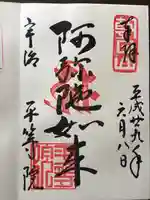 奉拝
平成廿九年
六月八日
阿弥陀如来
宇治
平等院